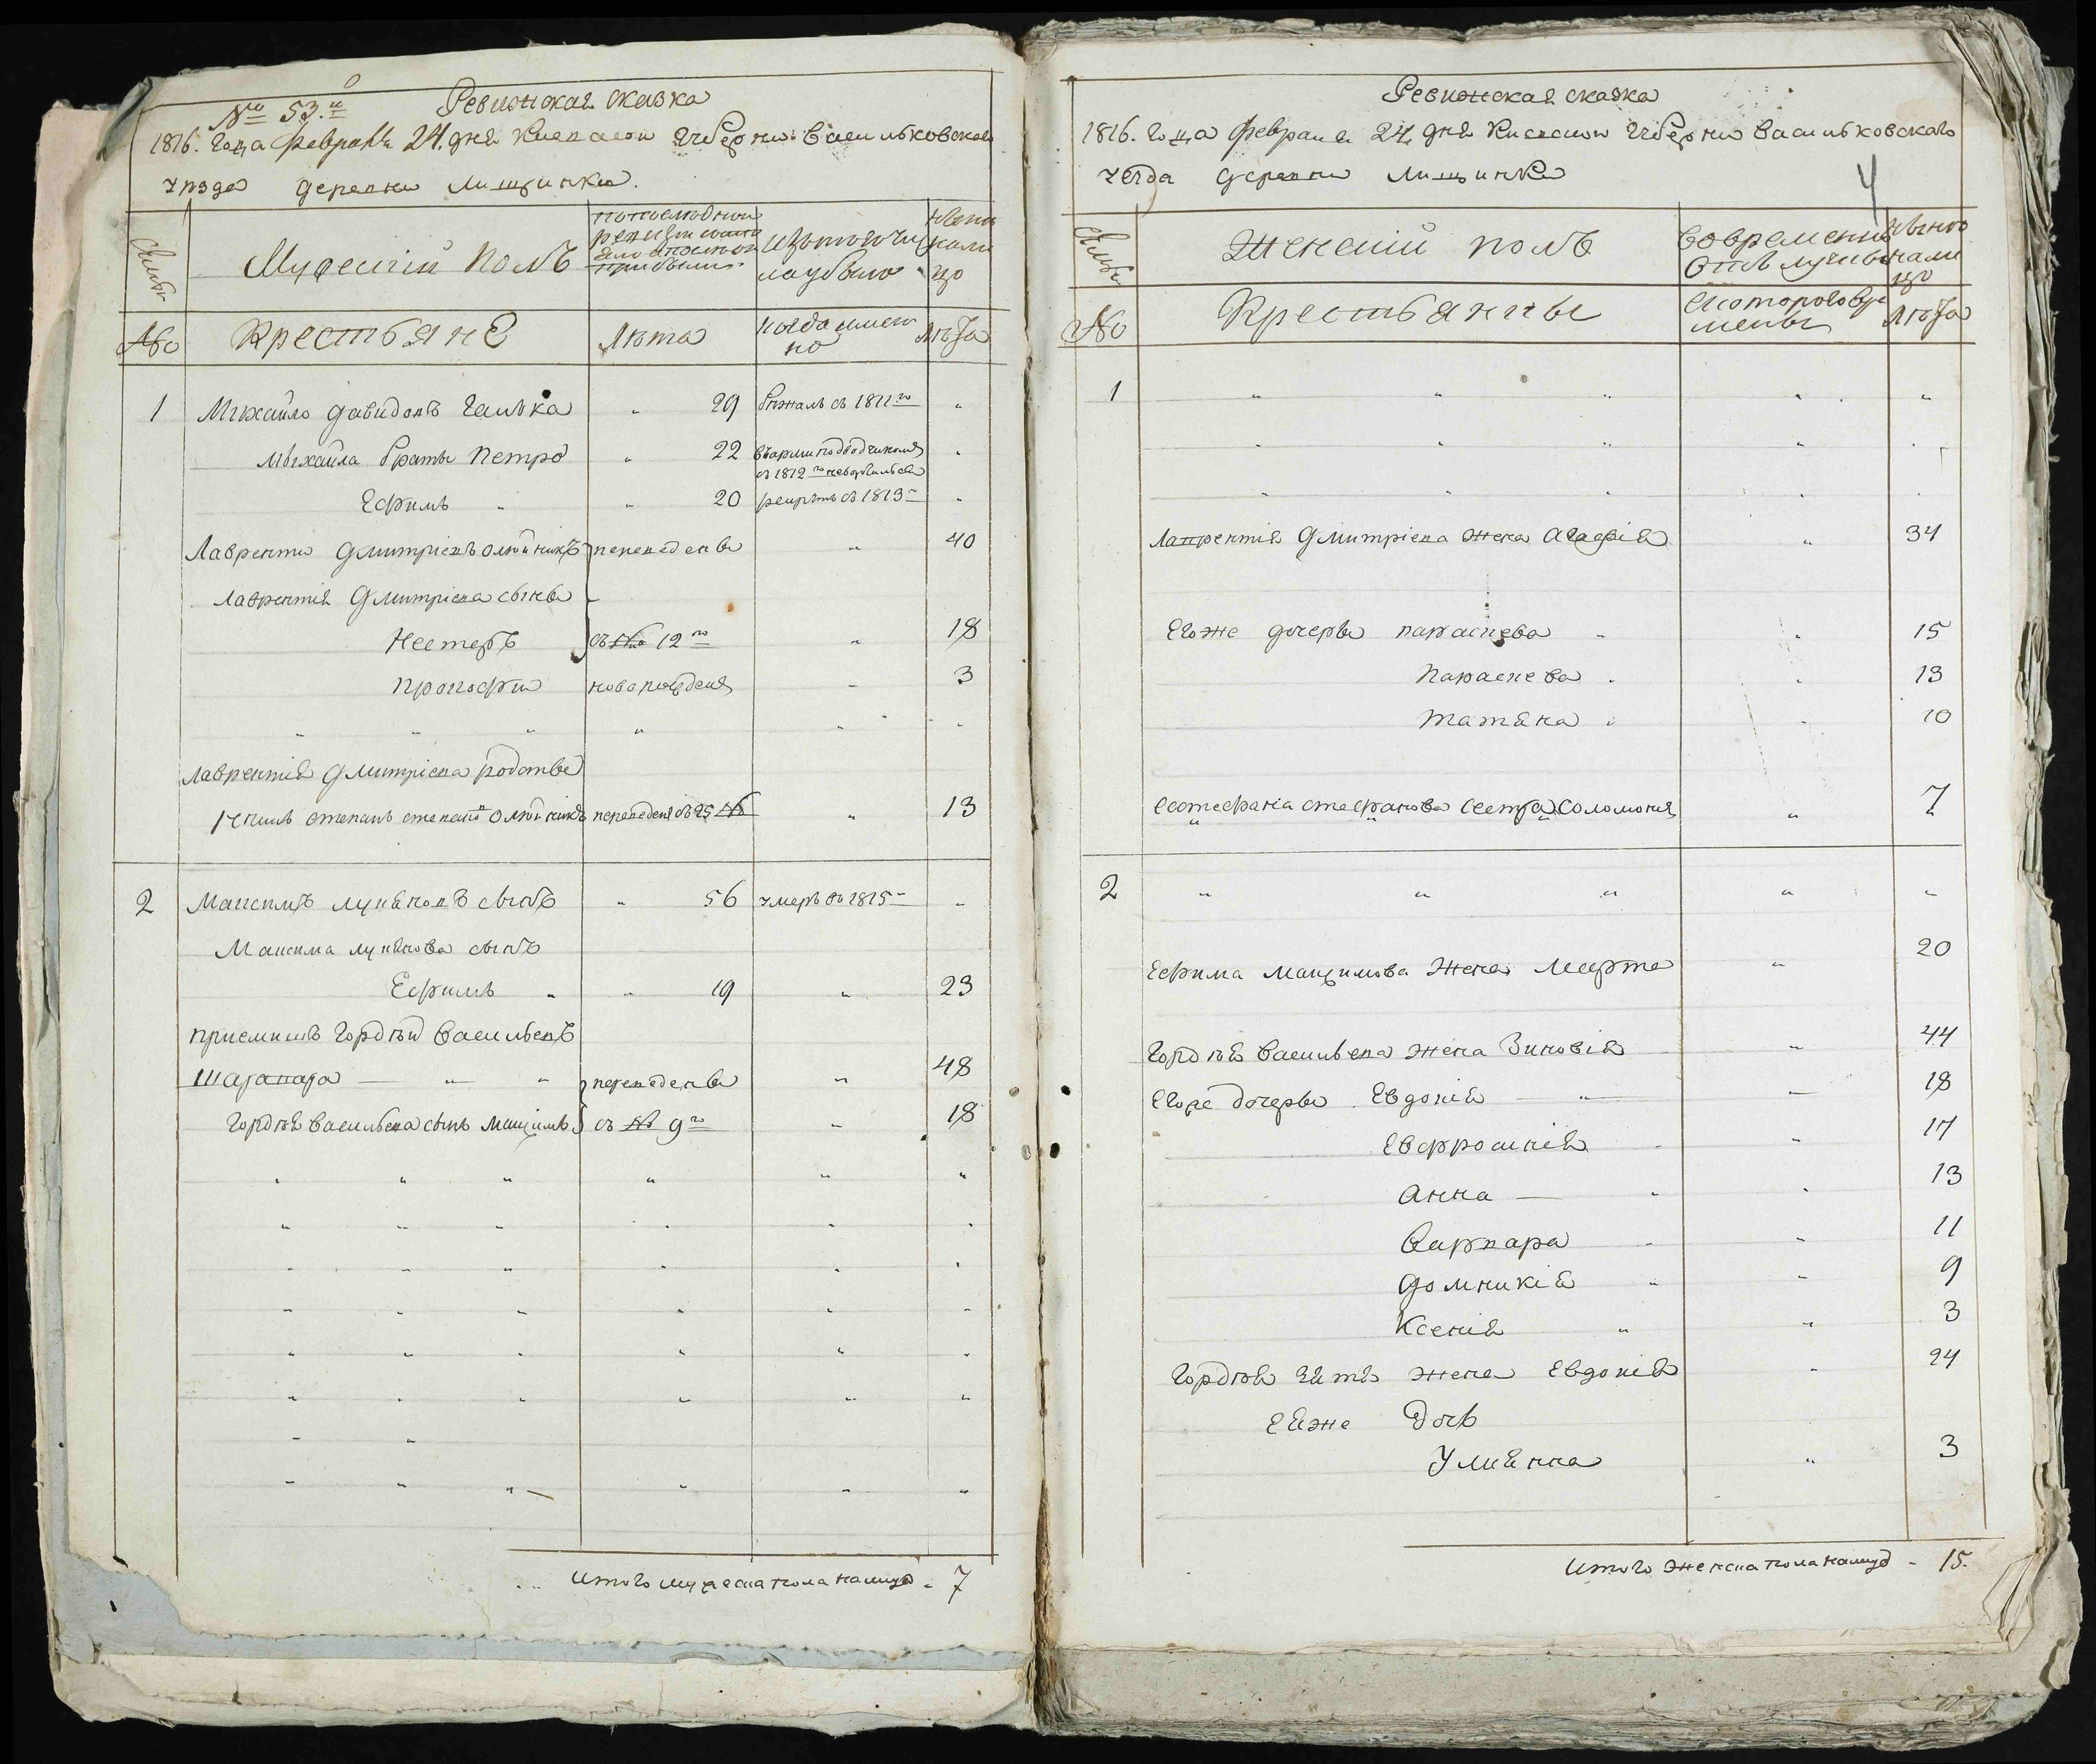 № 53.й Ревизская сказка
1816. года февраля 24. дня Киевской губернии Васильковского
уезда деревни Лищинки.
Семьи
Мужеский полъ
по последней ревизии состояло и после того прибыло
изъ того числа убыло
ныне на лицо
№
Крестьяне
Лета
когда именно
лета
1 Михайло Давидовъ Галька " 29 бежалъ въ 1811го "
Михайла братья Петро " 22 въ армии подводчикомъ
съ 1812го невозвратился "
Ефимъ " " 20 рекрутъ въ 1813м "
Лаврентий Дмитріевъ Олейникъ переведены " 40
Лаврентія Дмитріева сыны
Нестеръ съ № 12го " 18
Прокофий новорожденъ " 3
Лаврентія Дмитріева родстве
нникъ Степанъ Степановъ Олейникъ переведенъ съ 25 № " 13
2 Максимъ Лукяновъ сынъ " 56 умеръ въ 1815м "
Максима Лукянова сынъ
Ефимъ " " 19 " 23
приемышъ Гордей Васильевъ
Шарапара — " " переведены " 48
Гордея Васильева сынъ Максимъ съ № 9го " 18
Итого мужеска пола налицо - 7
Ревизская сказка
1816. года февраля 24. дня Киевской губернии Васильковского
уезда деревни Лищинки
4
Семьи
Женский полъ
во временной отлучке
ныне на лицо
№
Крестьянки
с котораго времени
лета
1 " " " " "
Лаврентія Дмитріева жена Агафія " 34
Его же дочери Параскева " " 15
Параскева " " 13
Татяна " " 10
Стефана Стефанова сестра Соломонія " 7
2 " " " " "
Ефима Максимова жена Марта " 20
Гордея Васильева жена Зиновія " 44
Его же дочери Евдокія — " — 18
Евфросинія " " 17
Анна — " " 13
Варвара " " 11
Домникія " " 9
Ксенія " " 3
Гордея зятя жена Евдокія " 24
Ея же дочь
Улияна " 3
Итого женска пола налицо - 15.